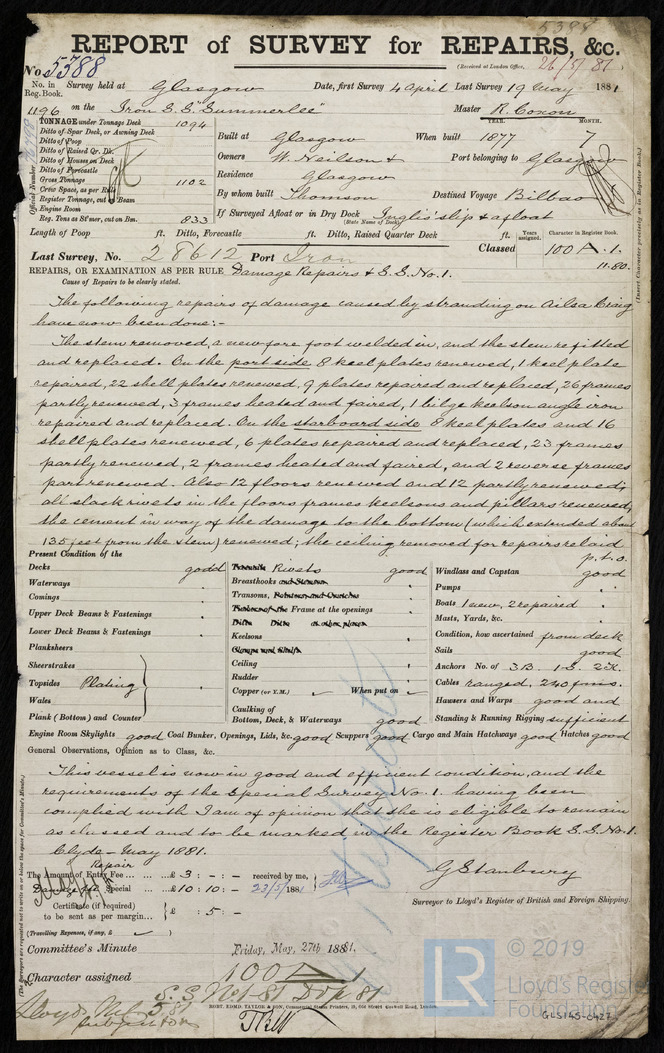 5388
REPORT of SURVEY for REPAIRS, &c.
No. 5388
(Received at London Office, 26/5/81
No. in Reg. Book. Survey held at Glasgow Date, first Survey 4 April Last Survey 19 May 1881
1196 on the Iron S.S. "Summerlee" Master R. Coxon
TONNAGE under Tonnage Deck 1094
Ditto of Spar Deck, or Awning Deck
Ditto of Poop
Ditto of Raised Qr. Dk.
Ditto of Houses on Deck
Ditto of Forecastle
Gross Tonnage 1102
Crew Space, as per Rule
Register Tonnage, cut on Beam
Engine Room
Reg. Tons as St'mer, cut on Bm. 833
Official Number
YEAR. MONTH.
Built at Glasgow When built 1877 7
Owners W. Neilson & Port belonging to Glasgow
Residence Glasgow
By whom built Thomson Destined Voyage Bilbao
If Surveyed Afloat or in Dry Dock Inglis' slip & afloat
(State Name of Dock.)
Length of Poop ft. Ditto, Forecastle ft. Ditto, Raised Quarter Deck ft.
Years assigned. Character in Register Book.
Last Survey, No. 28612 Port Iron Classed 100 A. 1.
11.80.
(Insert Character precisely as in Register Book.)
REPAIRS, OR EXAMINATION AS PER RULE Damage Repairs & S.S. No. 1.
Cause of Repairs to be clearly stated.
The following repairs of damage caused by stranding on Ailsa Craig
have now been done:-
The stem removed, a new fore foot welded in, and the stem refitted
and replaced. On the port side 8 keel plates renewed, 1 keel plate
repaired, 22 shell plates renewed, 9 plates repaired and replaced, 26 frames
partly renewed, 3 frames heated and faired, 1 bilge keelson angle iron
repaired and replaced. On the starboard side 8 keel plates and 16
shell plates renewed, 6 plates repaired and replaced, 23 frames
partly renewed, 2 frames heated and faired, and 2 reverse frames
part renewed. Also 12 floors renewed and 12 partly renewed;
all slack rivets in the floors frames keelsons and pillars renewed;
the cement in way of the damage to the bottom (which extended about
135 feet from the stem) renewed; the ceiling removed for repairs relaid
p.t.o.
Present Condition of the
Decks good
Waterways "
Comings "
Upper Deck Beams & Fastenings "
Lower Deck Beams & Fastenings "
Planksheers
Sheerstrakes
Topsides Plating "
Wales
Plank (Bottom) and Counter
Treenails Rivets good
Breasthooks and Stemson "
Transoms, Pointers and Crutches "
Timbers of the Frame at the openings "
Ditto Ditto at other places
Keelsons "
Clamps and Shelfs
Ceiling "
Rudder "
Copper (or Y.M.) When put on
Caulking of
Bottom, Deck, & Waterways good
Windlass and Capstan good
Pumps "
Boats 1 new, 2 repaired "
Masts, Yards, &c. "
Condition, how ascertained from deck
Sails good
Anchors No. of 3 B. 1 S. 2 K.
Cables ranged, 240 fms.
Hawsers and Warps good and
Standing & Running Rigging sufficient
Engine Room Skylights good Coal Bunker, Openings, Lids, &c. good Scuppers good Cargo and Main Hatchways good Hatches good
General Observations, Opinion as to Class, &c.
This vessel is now in good and efficient condition, and the
requirements of the Special Survey No. 1. having been
complied with I am of opinion that she is eligible to remain
as classed and to be marked in the Register Book S.S. No. 1.
Clyde - May 1881.
Repair
The Amount of Entry Fee ... £3 : - : - received by me,
Damage Special ... £10 : 10 : - 23/5/1881
Certificate (if required) to be sent as per margin... £ : 5 : -
(Travelling Expenses, if any, £
G Stanbury
Surveyor to Lloyd's Register of British and Foreign Shipping.
(The Surveyors are requested not to write on or below the space for Committee's Minute.)
Committee's Minute Friday, May, 27th 1881.
Character assigned 100 A 1
S.S. No 1 81
PORT. EDMD. TAYLOR & SON, Commercial Steam Printers, London.
LR
© 2019
Lloyd's Register
Foundation
GLS145-0427